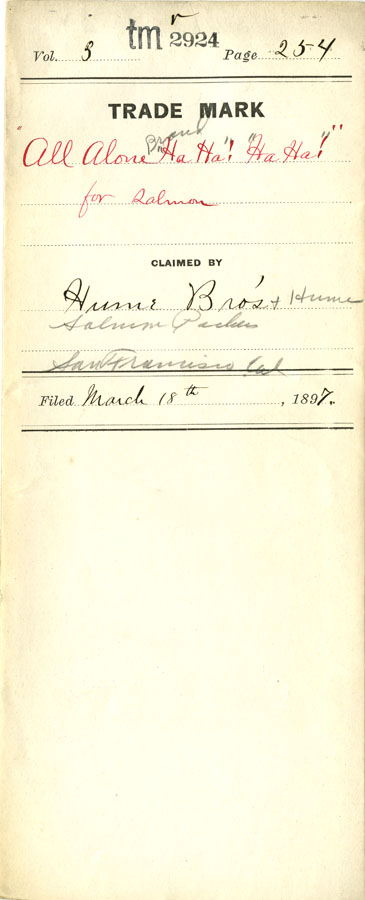 tm 2924
Vol. 3 Page 254
TRADE MARK
Brand
"All Alone "Ha Ha"! "Ha Ha"!"
for Salmon
CLAIMED BY
Hume Bro's + Hume
Salmon Packers
San Francisco Cal
Filed March 18th, 1897.